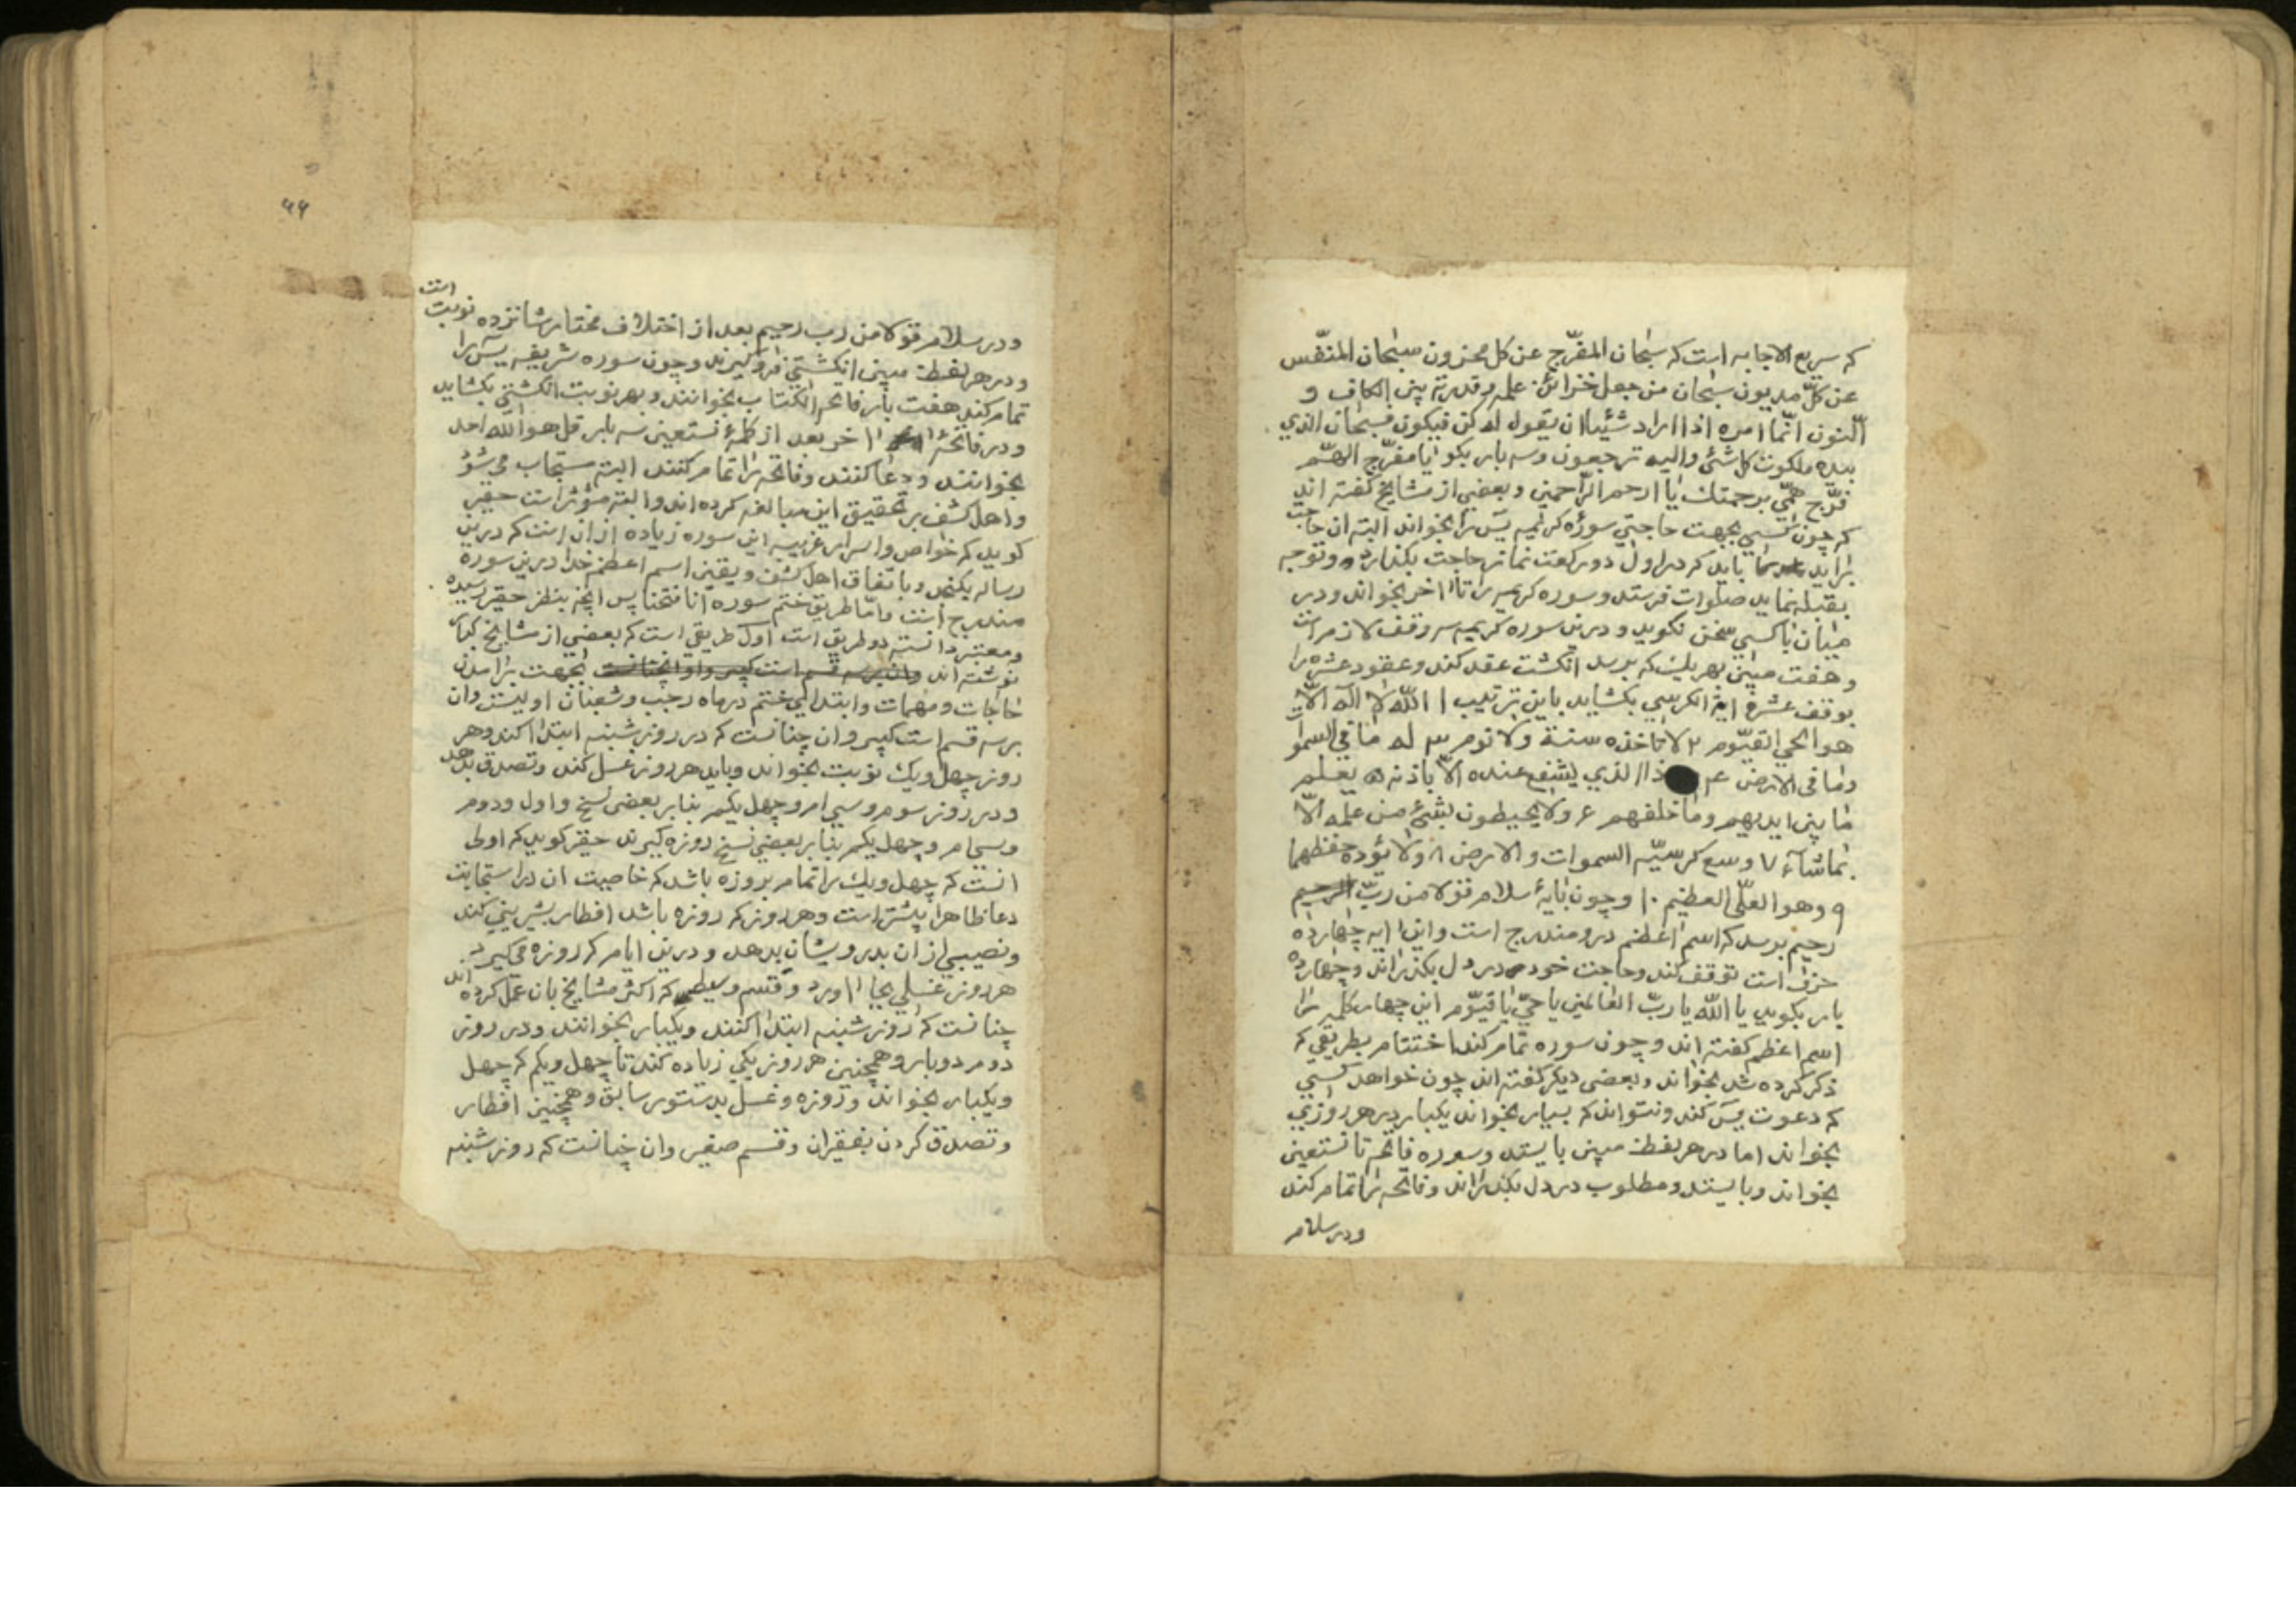 که سریع الاجابه است که سبحان المفرّج عن کل محزون سبحان المنفّس
عن کلّ مدیون سبحان من جعل خزائنه علمه وقدرته بین الکاف و
النون انّما امره اذا اراد شیئا ان یقول له کن فیکون فسبحان الذی
بیده ملکوت کل شئ والیه ترجعون وسه بار بکو یا مفرّج الهّم
فرّج همّی برحمتك یا ارحم الرّاحمین وبعضی از مشایخ کفته اند
که چون کسی بجهت حاجتی سورهٔ کریمه یسَ را بخواند البته ان حاجت
براید باید که در اول دو رکعت نماز حاجت بکذارد وتوجه
بقبله نماید صلوات فرستد وسوره کریمه را تا اخر بخواند ودر
میان با کسی سخن نکوید ودرین سوره کریمه سه وقف لازم است
وهفت مبین بهر یك که برسد انکشت عقد کند وعقود عشره را
بوقف عشرهٔ ایة الکرسی بکشاید باین ترتیب ۱ الله لا اله الّا
هو الحی القیّوم ۲ لا تاخذه سنة ولا نوم ۳ له ما فی السموات
وما فی الارض ۴ ذا الذی یشفع عنده الّا باذنه ۵ یعلم
ما بین ایدیهم وما خلفهم ۶ ولا یحیطون بشئ من علمه الّا
بماشاء ۷ وسع کرسیّه السموات والارض ۸ ولا یؤده حفظهما
۹ وهو العلّی العظیم ۱۰ وچون بایهٔ سلام قولا من ربّ الرحیم
رحیم برسد که اسم اعظم درو مندرج است واین ایه چهارده
حرف است توقف کند وحاجت خود در دل بکذراند وچهارده
بار بکوید یا الله یا ربّ العالمین یا حیّ یا قیّوم این چهار کلمه را
اسم اعظم کفته اند وچون سوره تمام کند اختتام بطریقی که
ذکر کرده شد بخواند وبعضی دیکر کفته اند چون خواهد کسی
که دعوت یسَ کند ونتواند که بسیار بخواند یکبار در هر روزی
بخواند اما در هر لفظ مبین بایستد وسوره فاتحه تا نستعین
بخواند وبایستد ومطلوب در دل بکذراند وفاتحه را تمام کند
ودر سلام
۹۹
ودر سلام قولا من رب رحیم بعد از اختلاف مختار شانزده نوبت
است
ودر هر لفظ مبین انکشتی فرا کیرند وچون سوره شریفه یسَ را
تمام کند هفت بار فاتحه الکتاب بخوانند وبهر نوبت انکشتی بکشاید
ودر فاتحهٔ اخر بعد از کلمهٔ نستعین سه بار قل هو الله احد
بخوانند ودعا کنند وفاتحه را تمام کنند البته مستجاب می شود
واهل کشف بر تحقیق این مبالغه کرده اند والبته مؤثر است حقیر
کوید که خواص واسرار غریبه این سوره زیاده ازان است که درین
رساله بکنجد وباتفاق اهل کشف ویقین اسم اعظم خدا درین سوره
مندرج است وامّا طریق ختم سوره انا فتحنا پس انچه بنظر حقیر رسیده
ومعتبر دانسته دو طریق است اول طریقی است که بعضی از مشایخ کبار
نوشته اند وان بر سه قسم است کبیر واو انچنانست بجهت برامدن
حاجات ومهمات وابتدای ختم در ماه رجب وشعبان اولیست وان
بر سه قسم است کبیر وان چنانست که در روز شنبه ابتدا کند وهر
روز چهل ویك نوبت بخواند وباید هر روز غسل کند وتصدق بدهد
ودر روز سوم وسی ام وچهل یکم بنابر بعضی نسخ واول ودوم
وسی ام وچهل یکم بنابر بعضی نسخ روزه کیرند حقیر کوید که اولی
انست که چهل ویك را تمام بروزه باشد که خاصیت ان در استجابت
دعا ظاهرا بیشتر است وهر روز که روزه باشد افطار بشیرینی کند
ونصیبی از ان بدرویشان بدهد ودرین ایام که روزه می کیرد
هر روز غسلی بجا اورد وقسم وسط که اکثر مشایخ بان عمل کرده اند
چنانست که روز شنبه ابتدا کنند ویکبار بخوانند ودر روز
دوم دوبار وهمچنین هر روز یکی زیاده کند تا چهل ویکم که چهل
ویکبار بخواند وروزه وغسل بدستور سابق وهمچنین افطار
وتصدق کردن بفقیران وقسم صغیر وان چنانست که روز شنبه